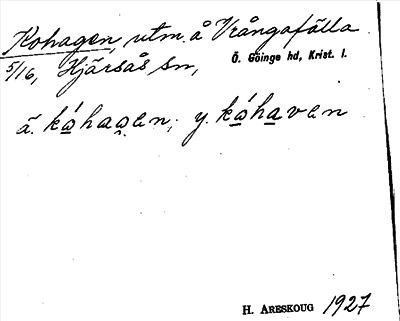 Kohagen, utm. å Vrångafälla
5/16, Hjärsås sn, Ö. Göinge hd, Krist. l.
ä. kóhagen; y. kóhaven
H. ARESKOUG 1927